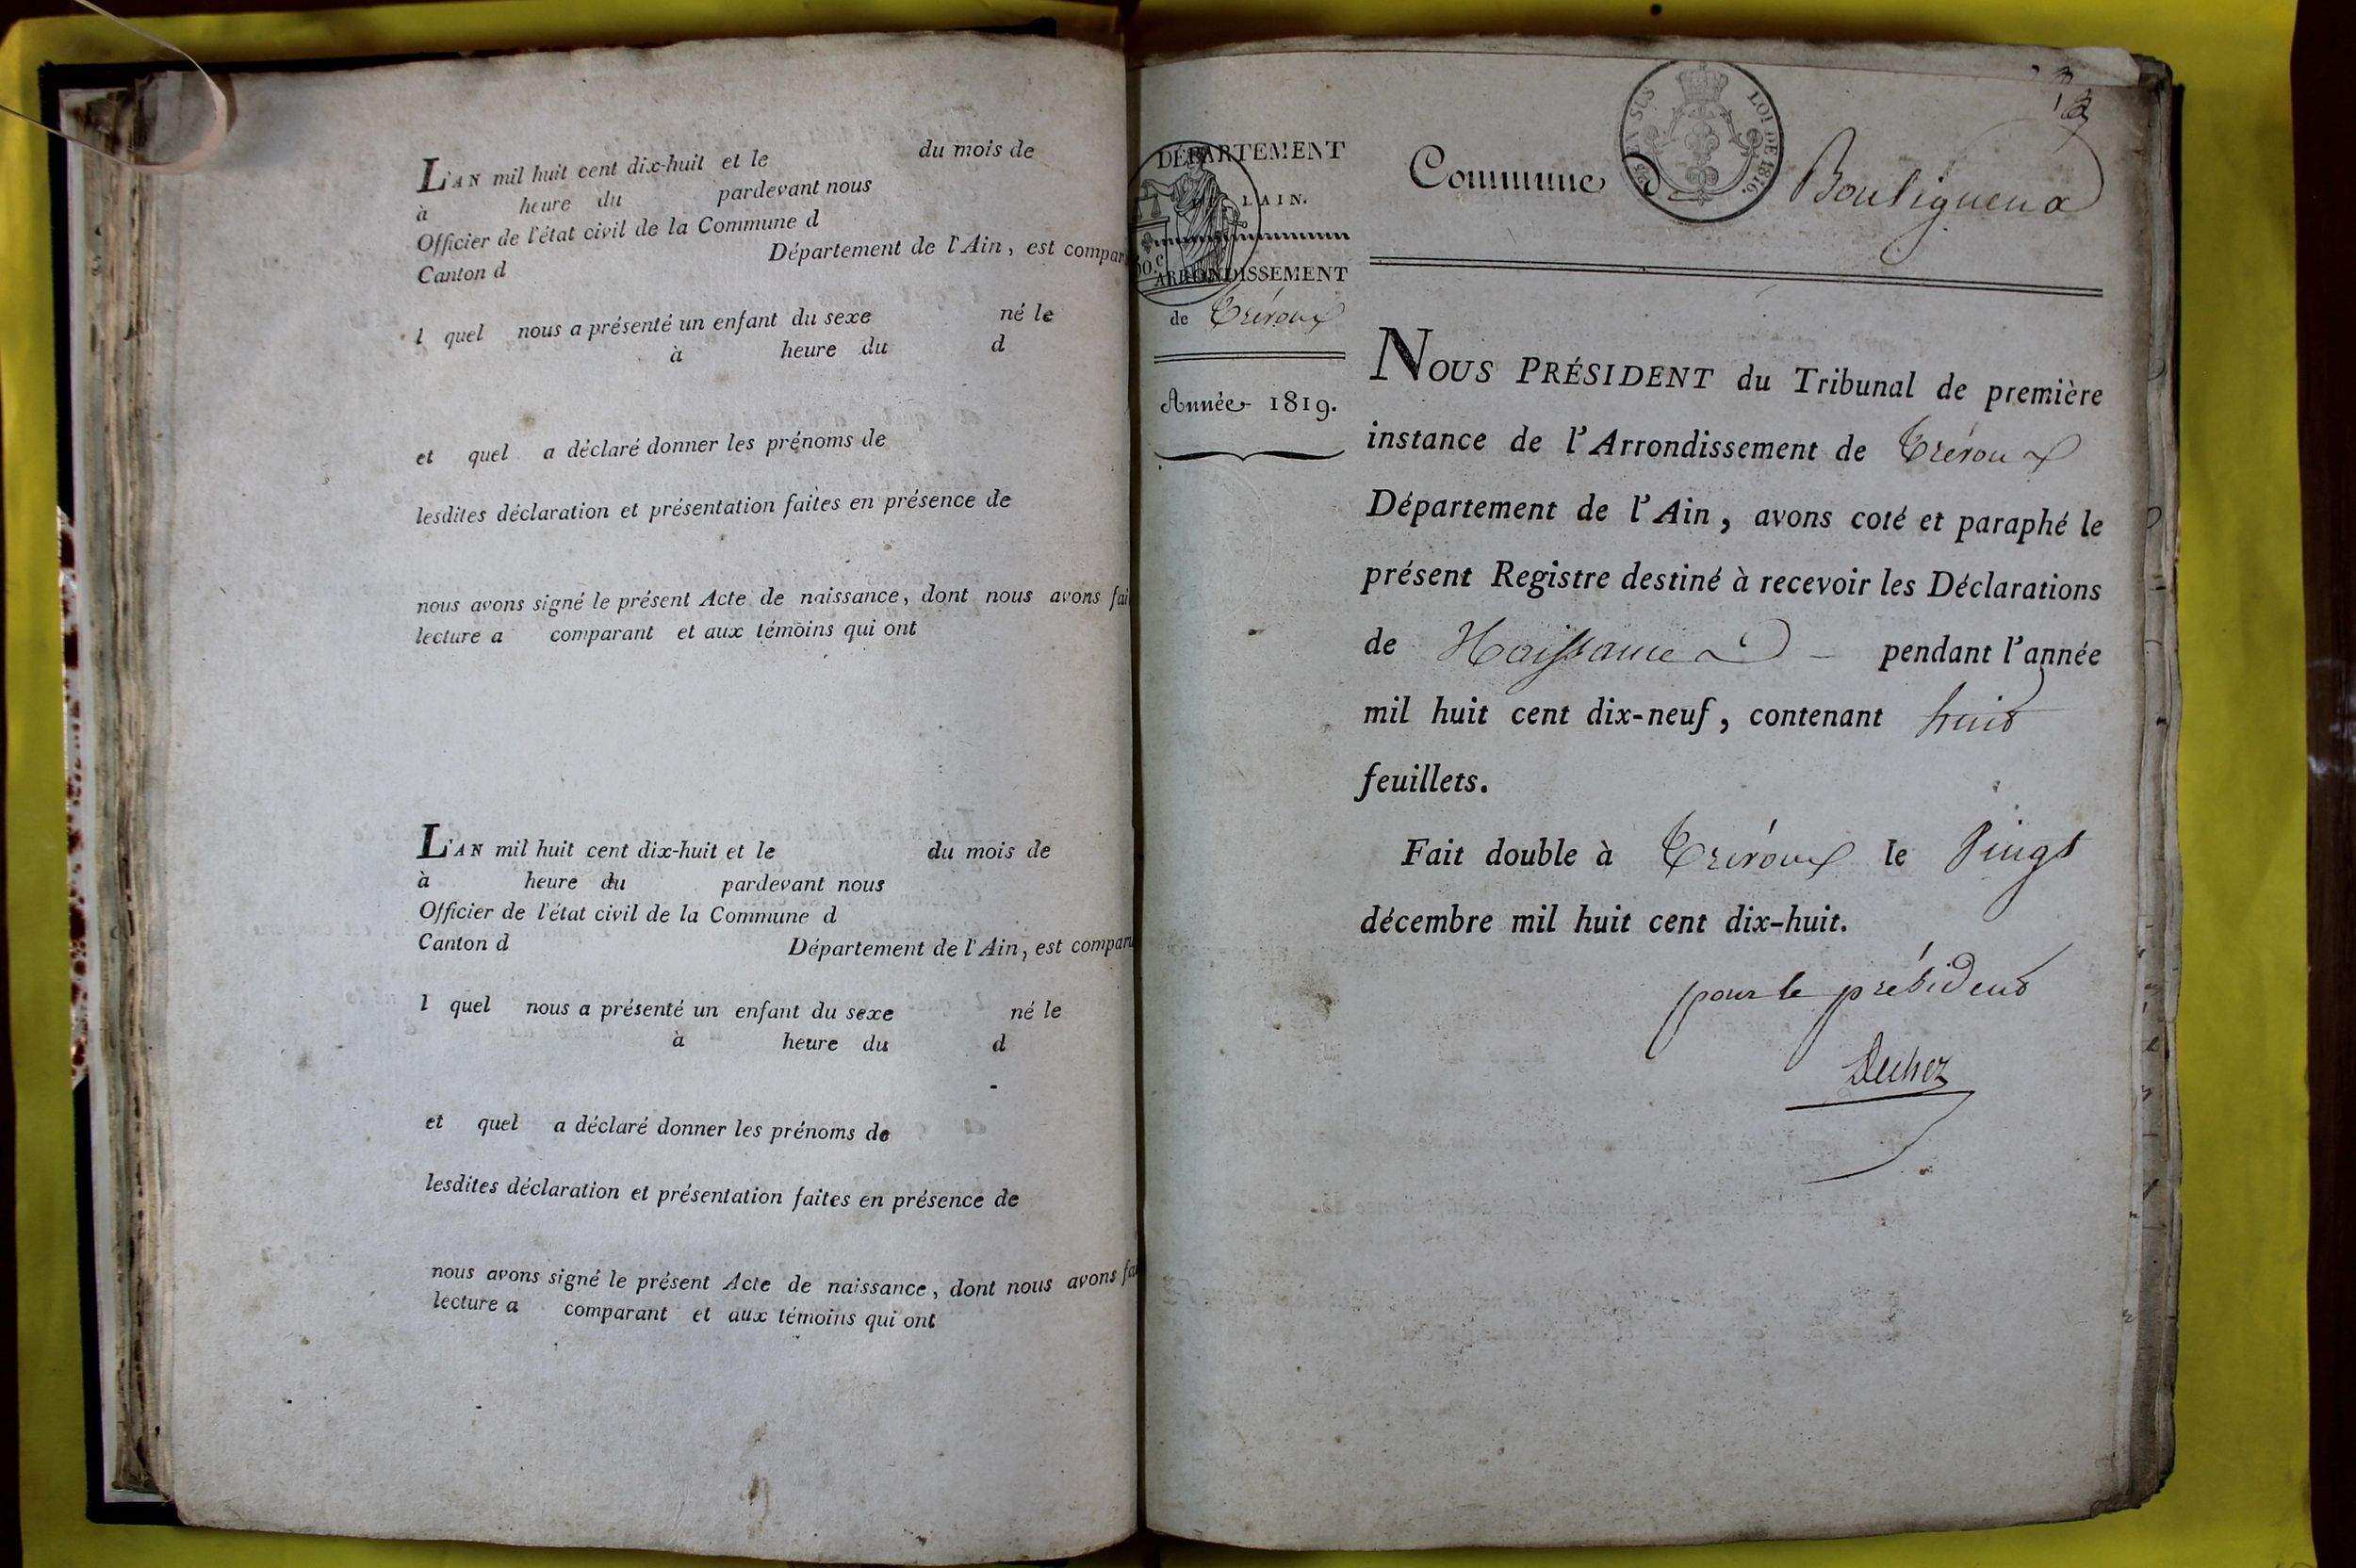 L'AN mil huit cent dix-huit et le du mois de
à heure du pardevant nous
Officier de l'état civil de la Commune d
Canton d Département de l'Ain, est compar
l quel nous a présenté un enfant du sexe né le
à heure du d
et quel a déclaré donner les prénoms de
lesdites déclaration et présentation faites en présence de
nous avons signé le présent Acte de naissance, dont nous avons fai
lecture a comparant et aux témoins qui ont
L'AN mil huit cent dix-huit et le du mois de
à heure du pardevant nous
Officier de l'état civil de la Commune d
Canton d Département de l'Ain, est comparu
l quel nous a présenté un enfant du sexe né le
à heure du d
et quel a déclaré donner les prénoms de
lesdites déclaration et présentation faites en présence de
nous avons signé le présent Acte de naissance, dont nous avons fai
lecture a comparant et aux témoins qui ont
DÉPARTEMENT
LAIN.
ARRONDISSEMENT
de Trévoux
Année 1819.
EN SUS LOI DE 1816.
Commune de Bouligneux
NOUS PRÉSIDENT du Tribunal de première
instance de l'Arrondissement de Trévoux
Département de l'Ain, avons coté et paraphé le
présent Registre destiné à recevoir les Déclarations
de Naissance pendant l'année
mil huit cent dix-neuf, contenant huit
feuillets.
Fait double à Trévoux le Vingt
décembre mil huit cent dix-huit.
pour le président